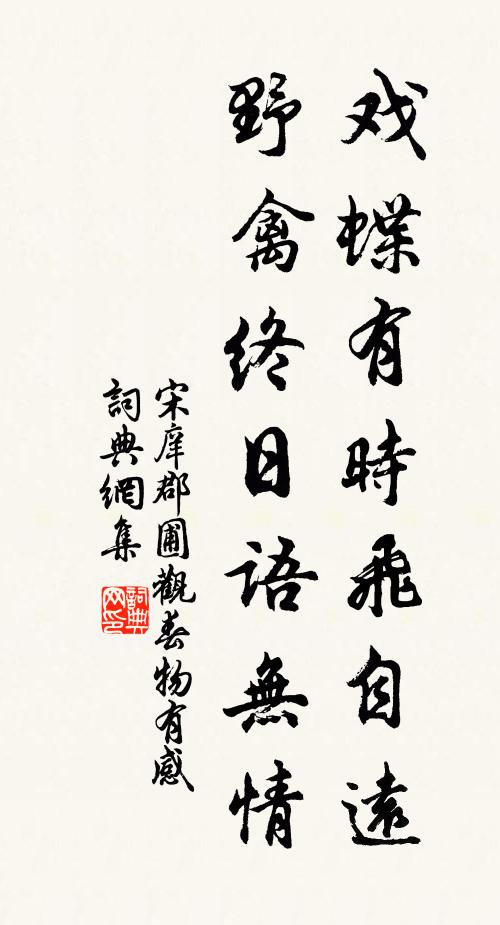 戏蝶有時飛自遠
野禽終日語無情
宋庠郡圃觀春物有感
詞典網集
詞典网印